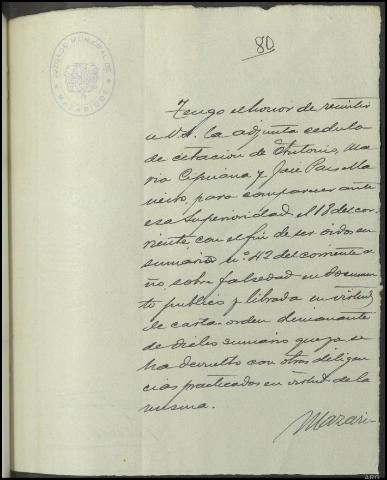 80
JUZGADO MUNICIPAL DE
MAZARICOS
Tengo el honor de remitir
a V.S. la adjunta cedula
de citacion de Antonio, Ma
ria Cipriana y Jose Pais Ma
neiro, para comparecer ante
esa Superioridad el 18 del cor
riente, con el fin de ser oidos en
sumario nº 42 del corriente a
ño, sobre falsedad en documen
to publico y librada en virtud
de carta-orden demanante
de dicho sumario que ya se
ha devuelto con otras diligen
cias practicadas en virtud de la
misma.
Mazari-